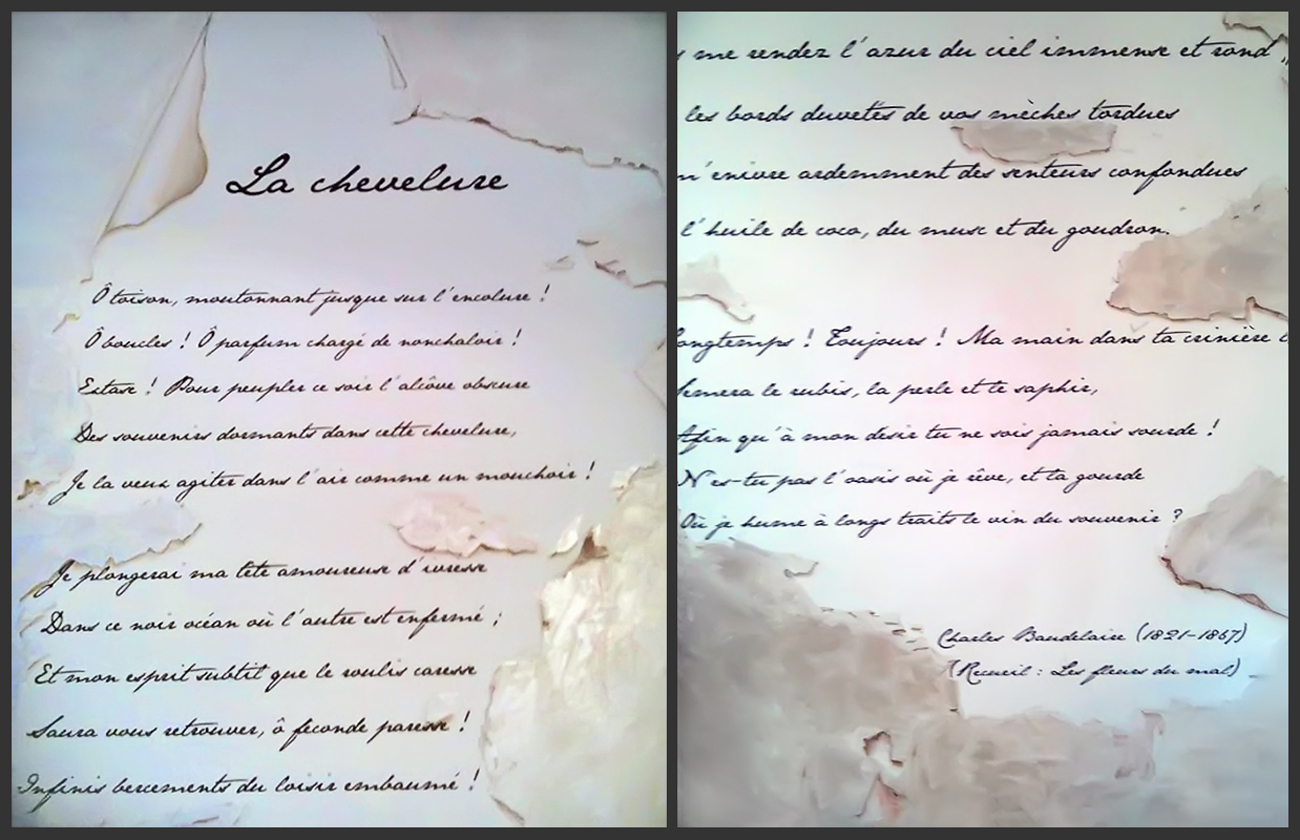 La chevelure
Ô toison, moutonnant jusque sur l'encolure !
Ô boucles ! Ô parfum chargé de nonchaloir !
Extase ! Pour peupler ce soir l'alcôve obscure
Des souvenirs dormants dans cette chevelure,
Je la veux agiter dans l'air comme un mouchoir !
Je plongerai ma tête amoureuse d'ivresse
Dans ce noir océan où l'autre est enfermé ;
Et mon esprit subtil que le roulis caresse
Saura vous retrouver, ô féconde paresse !
Infinis bercements du loisir embaumé !
me rendez l'azur du ciel immense et rond ;
les bords duvetés de vos mèches tordues
m'enivre ardemment des senteurs confondues
l'huile de coco, du musc et du goudron.
ongtemps ! Toujours ! Ma main dans ta crinière
Semera le rubis, la perle et le saphir,
Afin qu'à mon désir tu ne sois jamais sourde !
N'es-tu pas l'oasis où je rêve, et la gourde
Où je hume à longs traits le vin du souvenir ?
Charles Baudelaire (1821-1867)
(Recueil : Les fleurs du mal)